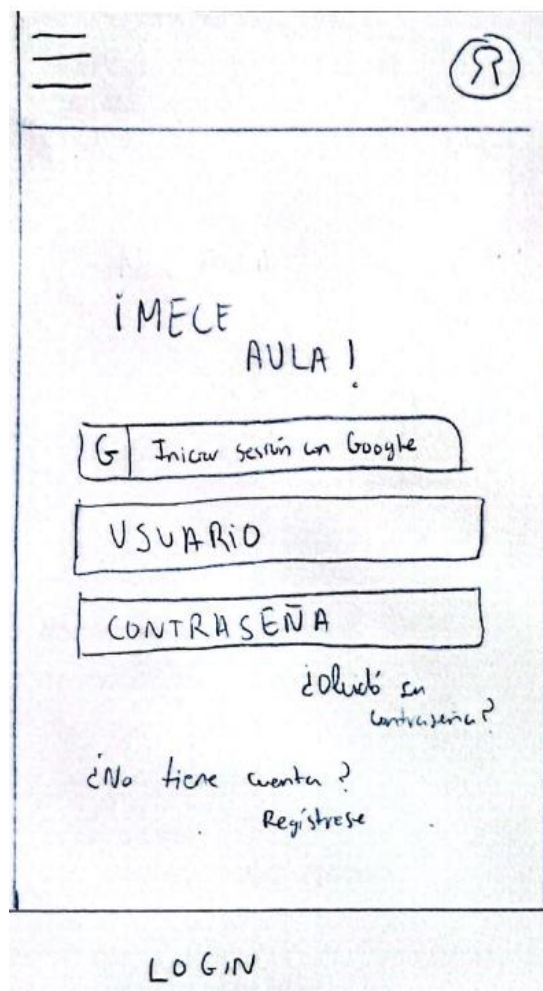 ¡MECE
AULA!
G Iniciar sesión con Google
USUARIO
CONTRASEÑA
¿Olvidó su
contraseña?
¿No tiene cuenta?
Regístrese
LOGIN